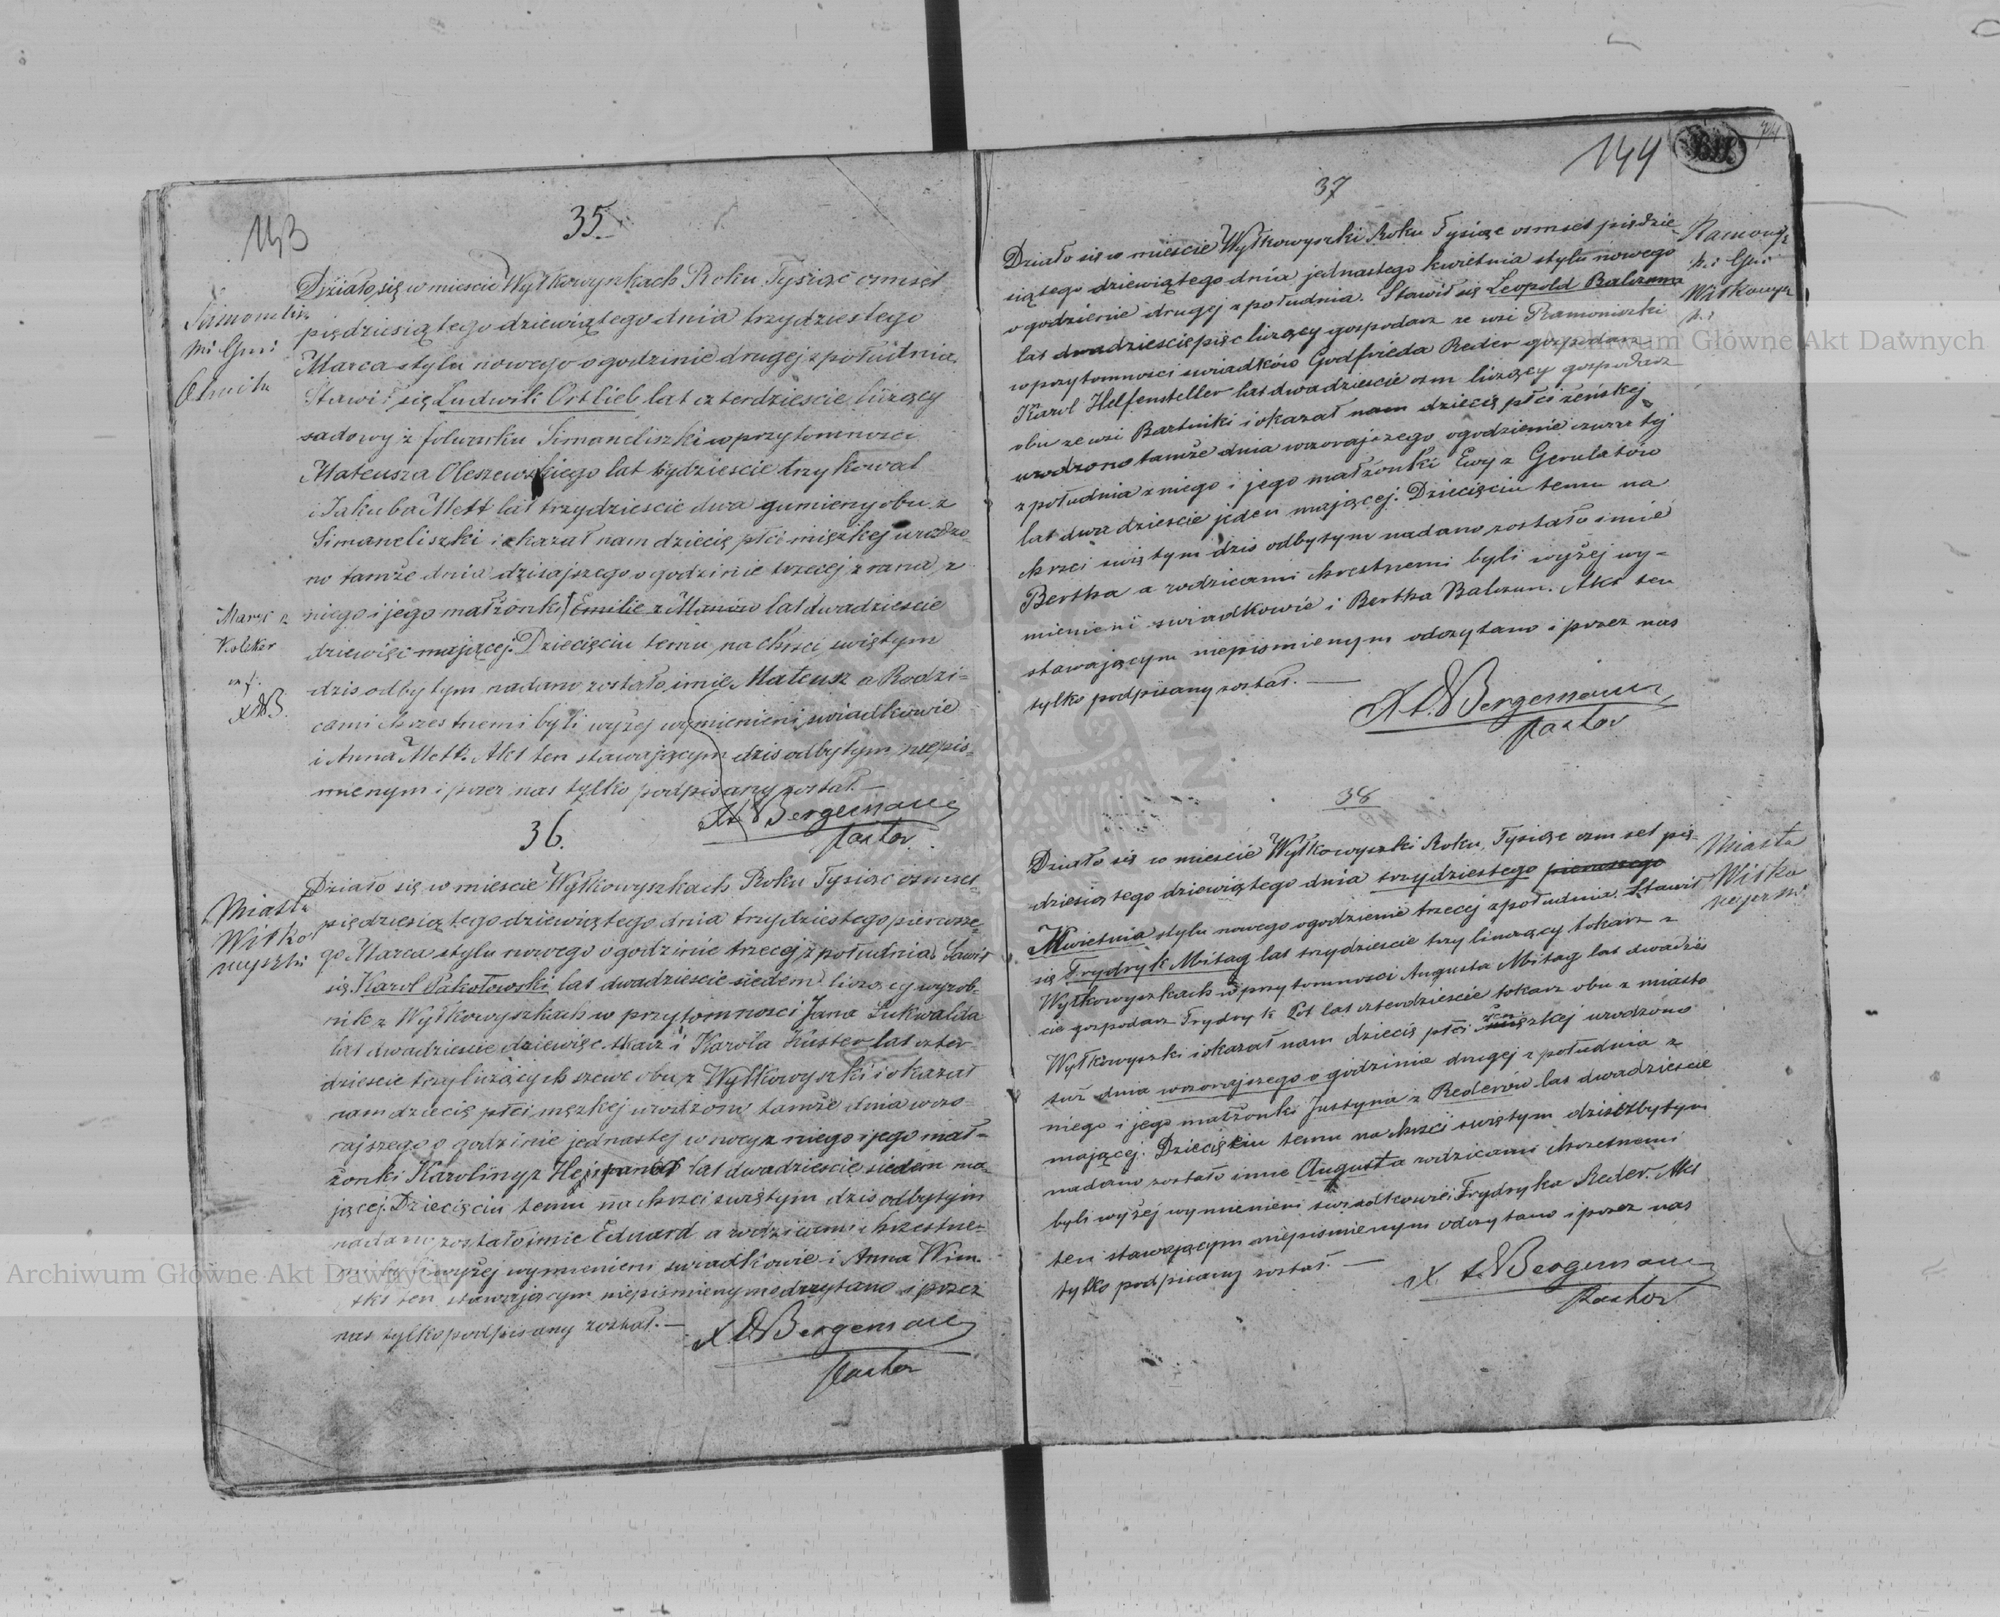 143
35
Simonelisz
ki Gmi
Działo się w mieście Wyłkowyszkach Roku Tysiąc osmset
piędziesiątego dziewiątego dnia trzydziestego
Marca stylu nowego o godzinie drugiej z południa
Stawił się Ludwik Ortlieb lat czterdzieście liczący
sadowy z folwarku Simaneliszki w przytomnosci
Mateusza Oleszewskiego lat trzydzieście trzy kowal
i Jakuba Mett lat trzydzieście dwa gumieny obu z
Simaneliszki i okazał nam dziecię płci mięzkiej urodzo-
no tamże dnia dzisajszego o godzinie trzeciej z rana z
niego i jego małżonki Emilie z Manów lat dwadzieście
dziewięć mającej. Dziecięciu temu na Chrzci świętym
dzis odbytym nadano zostało imie Mateusz a Rodzi-
cami chrzestnemi byli wyżej wymienieni swiadkowie
i Anna Mett. Akt ten stawającym dzis odbytym niepis-
mienym i przez nas tylko podpisany został.—
Maryi z
Volker
XAB.
X A Bergemann
Pastor
36.
Miasta
Wiłko
wyszki
Działo się w mieście Wyłkowyszkach Roku Tysiąc osmset-
piędziesiątego dziewiątego dnia trzydziestego pierwsze-
go Marca stylu nowego o godzinie trzeciej z południa Stawił
się Karol Pakołowski lat dwadzieście siedem liczący wyrob-
nik z Wyłkowyszkach w przytomnosci Jana Lukwalda
lat dwadzieście dziewięć tkacz i Karola Kuster lat czter
dzieście trzy liczących szewc obu z Wyłkowyszki i okazał
nam dziecię płci męzkiej urodzono tamże dnia wczo-
rajszego o godzinie jednastej w nocy z niego i jego mał-
żonki Karoliny z lat dwadzieście siedem ma-
jącej. Dziecięciu temu na chrzci świętym dzis odbytym
nadano zostało imie Eduard a rodzicami chrzestne-
mi byli wyżej wymienieni swiadkowie i Anna Wim.
Akt ten stawającym niepismienym odczytano i przez
nas tylko podpisany został.—
X A Bergemann
Pastor
144
37
Ramonisz
ki Gmi
Wiłkowysz
ki
Działo się w mieście Wyłkowyszki Roku Tysiąc osmset piędzie
siątego dziewiątego dnia jednastego kwietnia stylu nowego
o godzienie drugej z południa. Stawił się Leopold Balczuna
lat dwadzieście pięc liczący gospodarz ze wsi Ramoniszki
w przytomnosci swiadków Godfrieda Reder gospodarz
Karol Helfensteller lat dwadzieście osm liczący gospodarz
obu ze wsi Bartniki i okazał nam dziecię płci żeńskej
urodzono tamże dnia wczorajszego o godzienie czwartej
z południa z niego i jego małżonki Ewy z Gerulatów
lat dwadzieście jeden mającej. Dziecięciu temu na
chrzci świętym dzis odbytym nadano zostało imie
Bertha a rodzicami chrzestnemi byli wyżej wy-
mienieni swiadkowie i Bertha Balczun. Akt ten
stawającym niepismienym odczytano i przez nas
tylko podpisany został.—
X A Bergemann
Pastor
38
Miasta
Wiłko
wyszki
Działo się w mieście Wyłkowyszki Roku Tysiąc osm set pię-
dziesiątego dziewiątego dnia trzydziestego pierwszego
Kwietnia stylu nowego o godzienie trzeciej z południa. Stawił
się Frydryk Mitag lat trzydzieście trzy liczący tokarz z
Wyłkowyszkach w przytomności Augusta Mitag lat dwadzie
ście gospodarz Frydryk Pot lat czterdzieście tokarz obu z miasta
Wyłkowyszki i okazał nam dziecię płci męzkiej urodzono
tuż dnia wczorajszego o godzinie drugej z południa z
niego i jego małżonki Justyna z Rederów lat dwadzieście
mającej. Dziecięciu temu na chrzci świętym dzis odbytym
nadano zostało imie Augusta rodzicami chrzestnemi
byli wyżej wymienieni swiadkowie i Frydryka Reder. Akt
ten stawającym niepismienym odczytano i przez nas
tylko podpisany został.—
X A Bergemann
Pastor
Archiwum Główne Akt Dawnych
Archiwum Główne Akt Dawnych